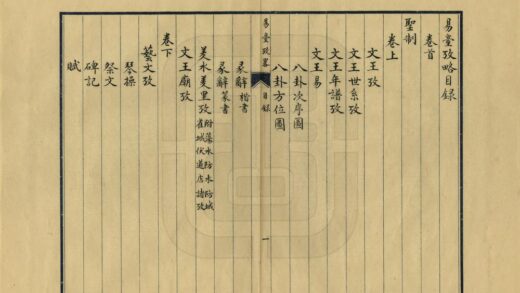 易臺攷略目錄
卷首
聖制
卷上
文王攷
文王世系攷
文王年譜攷
文王易
八卦次序圖
八卦方位圖
易臺攷畧
目錄
一
彖辭楷書
彖辭篆書
羑水羑里攷附蕩水防水防城
崔城伏道店諸攷
文王廟攷
卷下
藝文攷
琴操
祭文
碑記
賦